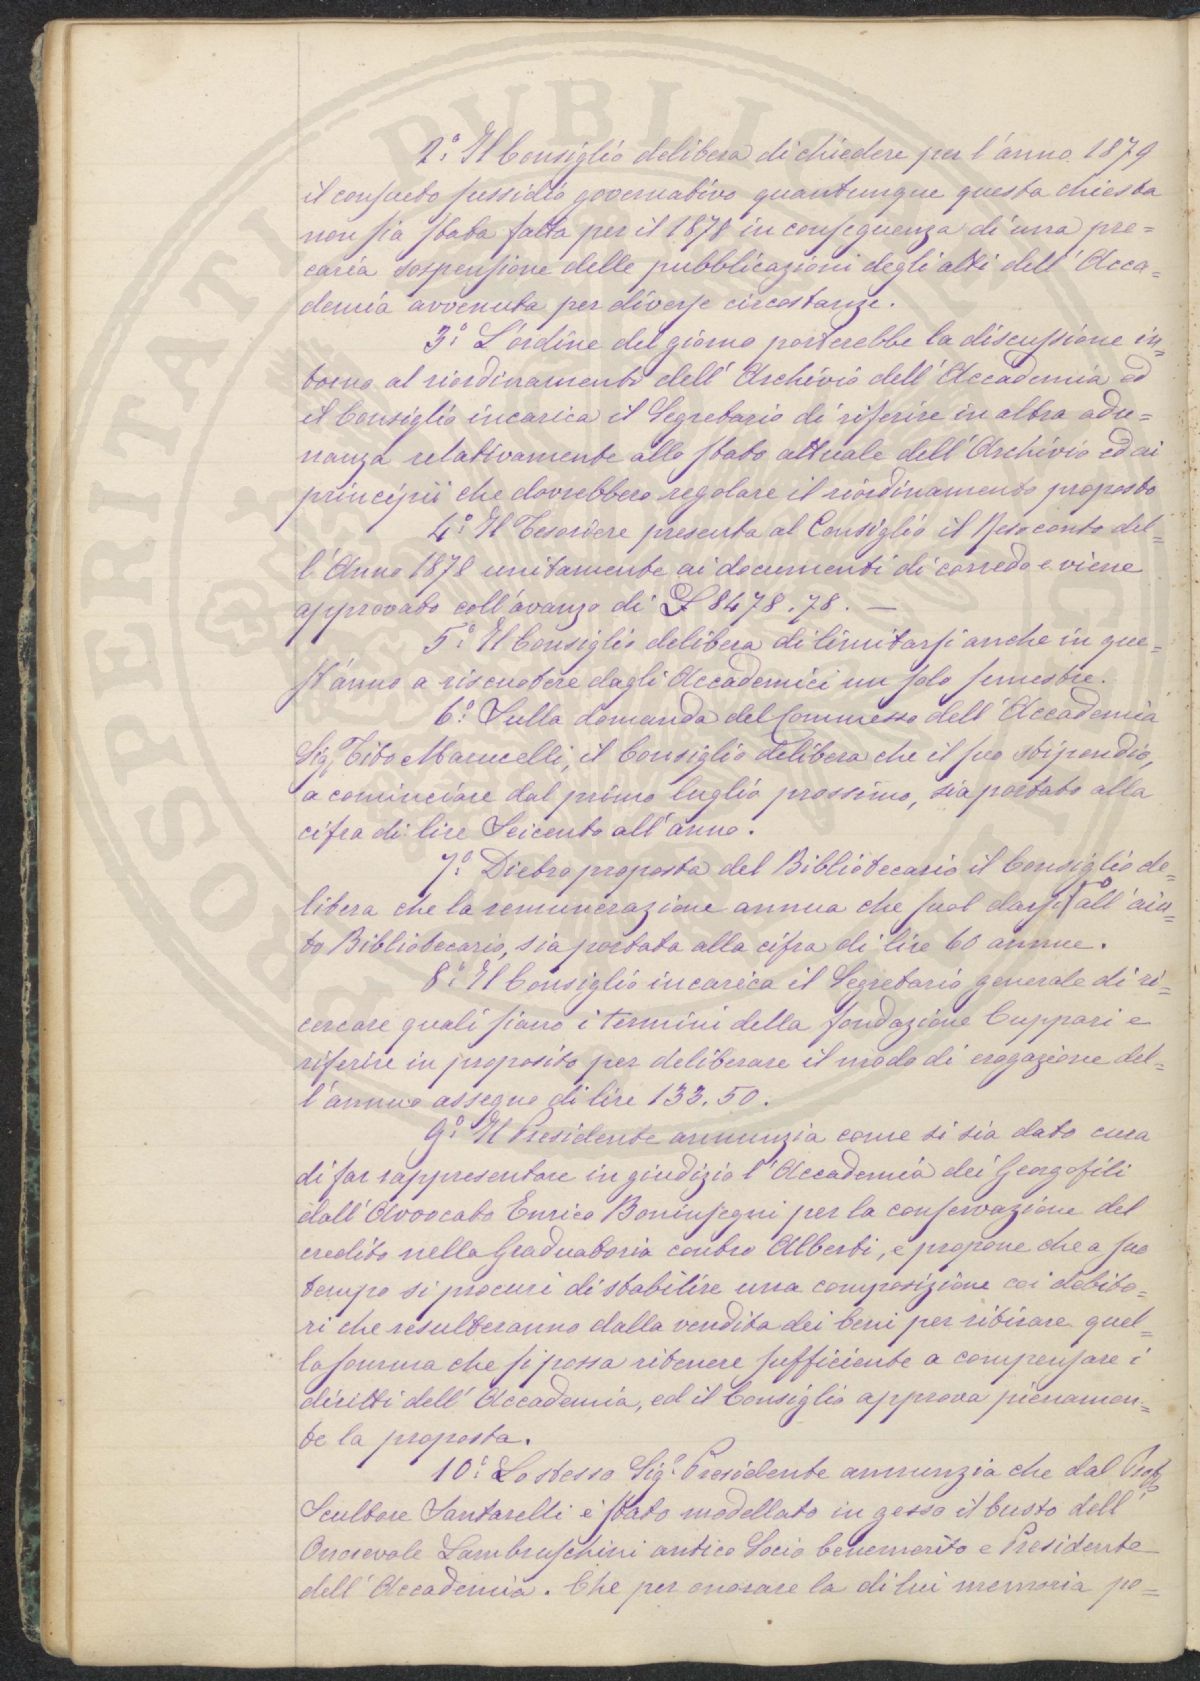 2.° Il Consiglio delibera di chiedere per l'anno 1879
il consueto sussidio governativo quantunque questa chiesta
non sia stata fatta per il 1878 in conseguenza di una pre=
caria sospensione delle pubblicazioni degli atti dell'Acca=
demia avvenuta per diverse circostanze.
3.° L'ordine del giorno porterebbe la discussione in=
torno al riordinamento dell'Archivio dell'Accademia ed
il Consiglio incarica il Segretario di riferire in altra adu=
nanza relativamente allo stato attuale dell'Archivio ed ai
principii che dovrebbero regolare il riordinamento proposto
4.° Il Tesoriere presenta al Consiglio il Resoconto del=
l'Anno 1878 unitamente ai documenti di corredo e viene
approvato coll'avanzo di £ 8478.78. —
5.° Il Consiglio delibera di limitarsi anche in que=
st'anno a riscuotere dagli Accademici un solo semestre.
6.° Sulla domanda del Commesso dell'Accademia
Sig. Tito Marucelli, il Consiglio delibera che il suo stipendio,
a cominciare dal primo luglio prossimo, sia portato alla
cifra di lire Seicento all'anno.
7.° Dietro proposta del Bibliotecario il Consiglio de=
libera che la remunerazione annua che suol darsi all'aiu=
to Bibliotecario, sia portata alla cifra di lire 60 annue.
8.° Il Consiglio incarica il Segretario generale di ri=
cercare quali siano i termini della fondazione Cuppari e
riferire in proposito per deliberare il modo di erogazione del=
l'annuo assegno di lire 133.50.
9.° Il Presidente annunzia come si sia dato cura
di far rappresentare in giudizio l'Accademia dei Georgofili
dall'Avvocato Enrico Boninsegni per la conservazione del
credito nella Graduatoria contro Alberti, e propone che a suo
tempo si procuri di stabilire una composizione coi debito=
ri che resulteranno dalla vendita dei beni per ritirare quel=
la somma che si possa ritenere sufficiente a compensare i
diritti dell'Accademia, ed il Consiglio approva pienamen=
te la proposta.
10.° Lo stesso Sig.r Presidente annunzia che dal Prof.
Scultore Santarelli è stato modellato in gesso il busto dell'
Onorevole Lambruschini antico Socio benemerito e Presidente
dell'Accademia. Che per onorare la di lui memoria po=
PROSPERITATI PUBLICAE